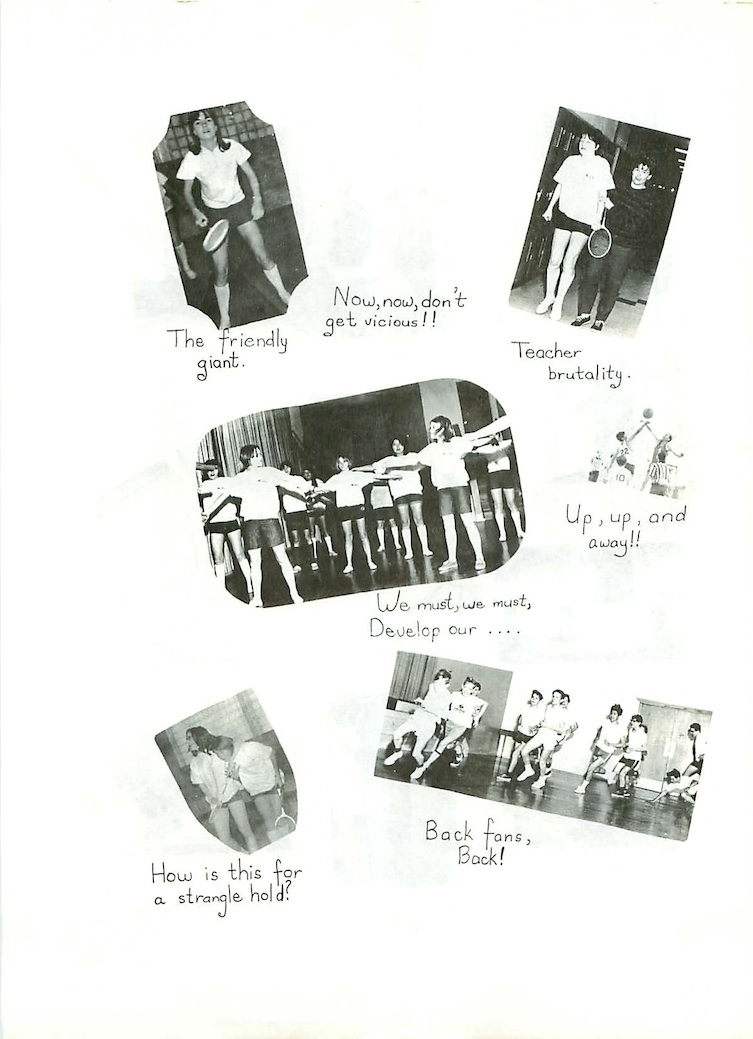 Now, now, don't
get vicious!!
The friendly
giant.
Teacher
brutality.
Up, up, and
away!!
We must, we must,
Develop our ....
Back fans,
Back!
How is this for
a strangle hold?